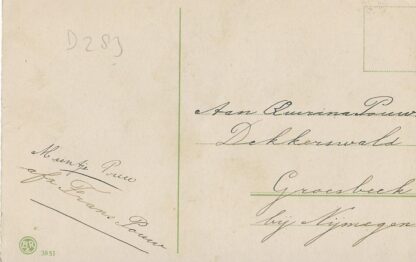 D 283
Aan Querina Pouw.
Dekkerswald
Groesbeek
bij Nijmegen
Muntje Pouw
afz. Frans Pouw
3851